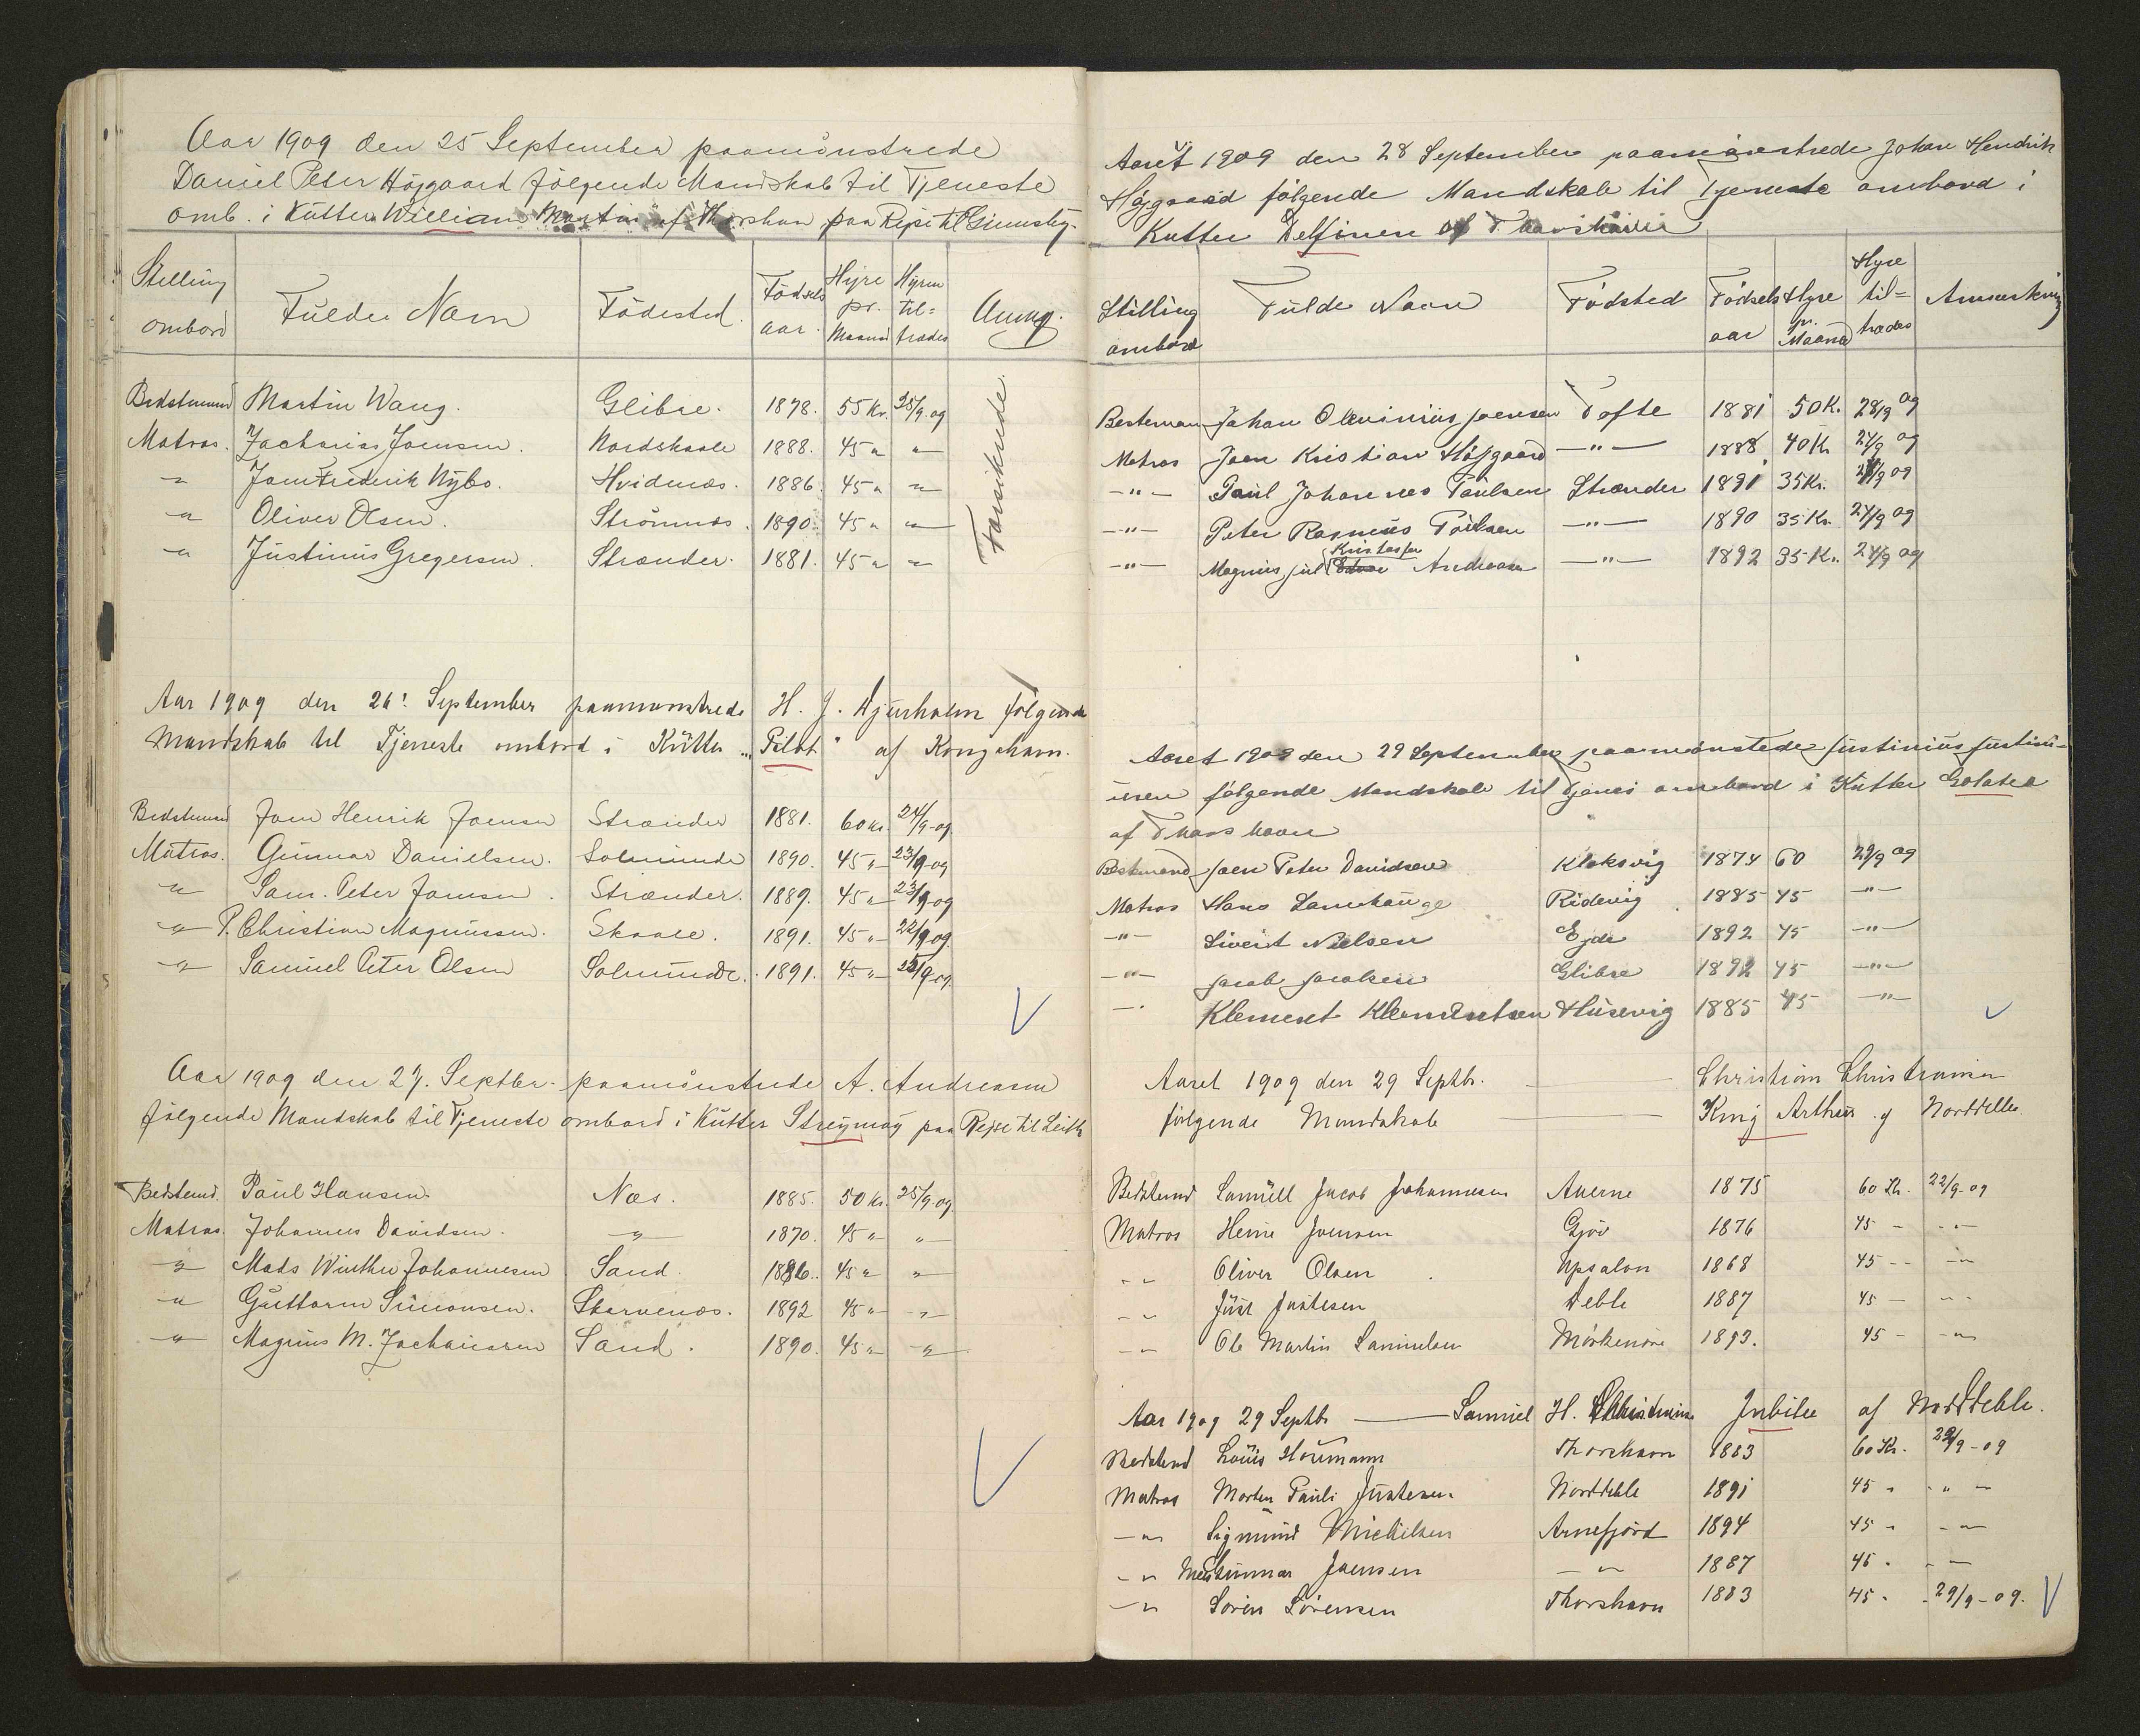 Aar 1909 den 25 September paamönstrede
Daniel Peter Höjgaard følgende Mandskab til Tjeneste
omb. i Kutter William Martin af Thorshavn paa Rejse til Grimsby.
Stilling ombord Fulde Navn Födested. Födsels aar. Hyre pr. Maaned Hyren til= trædes Anmg.
Bedstemand Martin Wang. Glibre. 1878. 55 Kr. 25/9-09 Farsikinde.
Matros. Zacharias Joensen. Nordskaale 1888. 45 " "
" Joen Frederik Nybo. Hvidenæs. 1886. 45 " "
" Oliver Olsen. Strömnæs. 1890. 45 " "
" Justinus Gregersen. Strænder. 1881. 45 " "
Aar 1909 den 26' September paamönstrede H. J. Djurholm følgende
Mandskab til Tjeneste ombord i Kutter "Pilot" af Kongshavn.
Bedstemand Joen Henrik Joensen Strænder 1881. 60 Kr. 24/9-09
Matros. Gunnar Danielsen. Solmunde 1890. 45 " 23/9-09
" Sam. Peter Joensen. Strænder. 1889. 45 " 23/9-09
" P. Christian Magnussen. Skaale. 1891. 45 " 22/9-09.
" Samuel Peter Olsen Solmunde. 1891. 45 " 25/9-09.
Aar 1909 den 27. Septbr. paamönstrede A. Andreasen
følgende Mandskab til Tjeneste ombord i Kutter Streymoy paa Rejse til Leith
Bedstemd. Paul Hansen. Næs. 1885. 50 Kr. 25/9-09.
Matros. Johannes Davidsen. " 1870. 45 " "
" Mads Winther Johannesen Sand. 1886. 45 " "
" Guttorm Simonsen. Skarvenæs. 1892 45 " "
" Magnus M. Zachariasen Sand. 1890. 45 " "
Aaret 1909 den 28 September paamönstrede Johan Hendrik
Höjgaard følgende Mandskab til Tjeneste ombord i
Kutter Delfinen af Thorshavn
Stilling ombord Fulde Navn Födsted Födselsaar Hyre pr. Maaned Hyre til= trædes Anmerkning
Besteman Johan Olevinius Joensen Tofte 1881 50 K. 28/9 09
Matros Joen Kristian Höjgaard —"— 1888 40 Kr 27/9 09
—"— Paul Johannes Paulsen Strænder 1891 35 Kr. 28/9 09
—"— Peter Rasmus Poulsen —"— 1890 35 Kr. 27/9 09
—"— Magnus Jul Kristoffer Andreasen —"— 1892 35 Kr. 27/9 09
Aaret 1909 den 29 September paamönstede Justinius Justini-
usen følgende Mandskab til Tjenes ombord i Kutter Golatea
af Thorshavn
Bestmand Joen Peter Davidsen Klaksvig 1874 60 29/9 09
Matros Hans Lamhauge Ridevig 1885 45 —"—
—"— Sivert Nielsen Ejde 1892 45 —"—
—"— Jacob Jacobsen Glibre 1892 45 —"—
— Klement Klementsen Husevig 1885 45 —"—
Aaret 1909 den 29 Septbr. Christian Christiansen
følgende Mandskab King Arthur af Norddeble.
Bedstemd Samuell Jacob Johannesen Auerne 1875 60 Kr. 22/9-09
Matros Heine Joensen Gjov 1876 45 - - -
- - Oliver Olsen Upsalon 1868 45 - - -"
- - Just Justesen Deble 1887 45 - - -
- - Ole Martin Samuelsen Mörkenöre 1893. 45 - -"
Aar 1909 29 Septbr — Samuel H. Christiansen Jubilee af Norddeble.
Bedstemd Louis Houmann Thorshavn 1883 60 Kr. 29/9-09
Matros Morten Pauli Justesen. Norddeble 1891 45 - - " -
-" Sigmund Michelsen Arnefjord 1894 45 - - "
-" Joensen -" 1887 45 - - -
-" Sören Sörensen Thorshavn 1883 45 - 29/9-09.